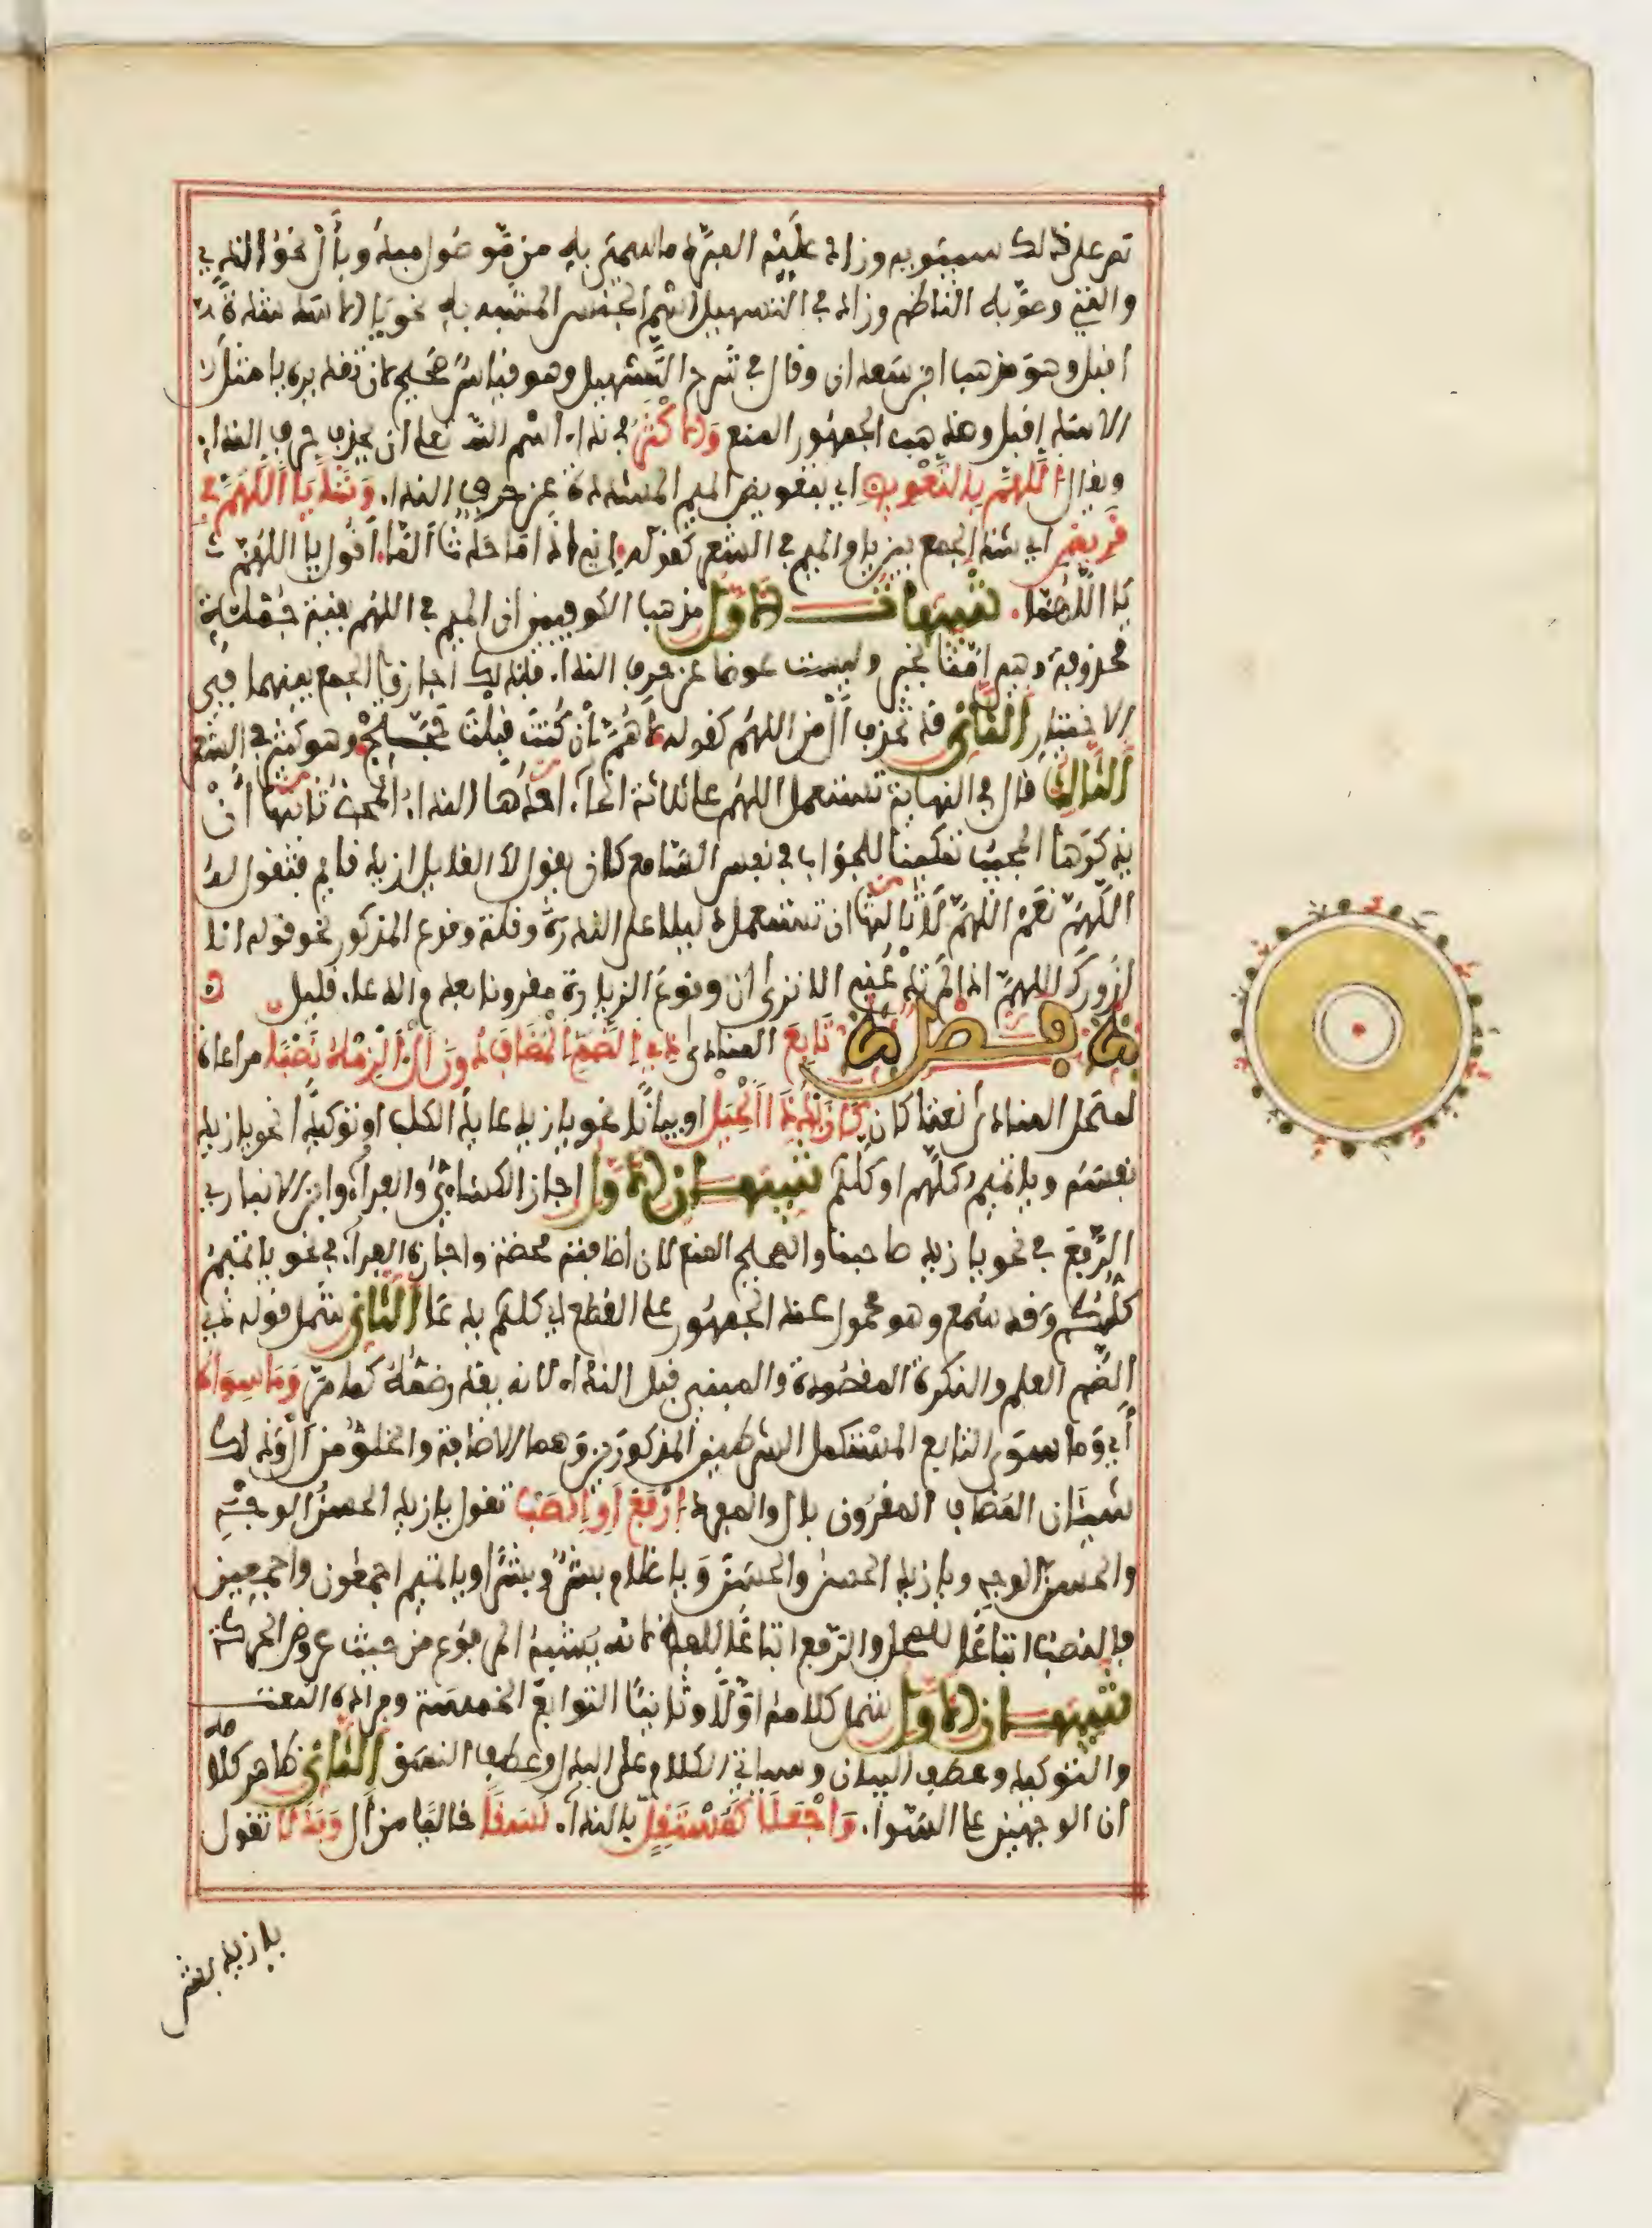 نص على ذلك سيبويه وزاد عليه المبرد ما سمي به من موصول مبدوء بأل نحو الذي
والتي وصوبه الناظم وزاد في التسهيل اسم الجنس المشبه به نحو يا الاسد شدة
اقبل وهو مذهب ابن سعدان وقال في شرح التسهيل وهو قياس صحيح لان تقديره يا مثل
الاسد اقبل ومذهب الجمهور المنع والاكثر في نداء اسم الله تعلى ان يحذف حرف النداء
ويقال اللهم بالتعويض اي بتعويض الميم المشددة عن حرف النداء. وشذ يا اللهم في
قريض اي شذ الجمع بين يا والميم في الشعر كقوله اني اذا ما حدث الما. اقول يا اللهم
يا اللهما. تنبيهات الاول مذهب الكوفيين ان الميم في اللهم بقية جملة
محذوفة وهي امنا بخير وليست عوضا عن حرف النداء. فلذلك اجازوا الجمع بينهما في
الاختيار الثاني قد تحذف ال من اللهم كقوله لاهم ان كنت قبلت حجتج وهو كثير في الشعر
الثالث قال في النهاية تستعمل اللهم على ثلاثة انحاء. احدها النداء المحض ثانيها ان
يذكرها المجيب تمكينا للجواب في نفس السامع كان يقول لك القايل ازيد قايم فتقول له
اللهم نعم اللهم لا ثالثها ان تستعمل دليلا على الندرة وقلة وقوع المذكور نحو قوله انا
ازورك اللهم اذا لم تدعني الا ترى ان وقوع الزيارة مقرونا بعدم الدعاء قليل ه
فصل تابع المنادى ذي الضم المضاف دون ال الزمه نصبا مراعاة
لمحل المنادى نعتا كان كازيد ذا الحيل او بيانا نحو يا زيد عايد الكلب او توكيدا نحو يا زيد
نفسه ويا تميم كلهم او كلكم تنبيهان الاول اجاز الكساءي والفراء وابن الانباري
الرفع في نحو يا زيد صاحبنا والصحيح المنع لان اضافته محضة واجازه الفراء في نحو يا تميم
كلكم وقد سمع وهو محمول عند الجمهور على القطع اي كلكم يدعا الثاني شمل قوله ذي
الضم العلم والنكرة المقصودة والمبني قبل النداء لانه يقدر ضمه كما مر وما سواه
اي وما سوى التابع المستكمل الشرطين المذكورين وهما الاضافة والخلو من ال وذلك
شيئان المضاف المقرون بال والمفرد ارفع او انصب تقول يا زيد الحسن الوجه
والحسن الوجه ويا زيد الحسن والحسن ويا غلام بشر وبشرا ويا تميم اجمعون واجمعين
فالنصب اتباعا للمحل والرفع اتباعا للفظ لانه يشبه المرفوع من حيث عروض الحركة
تنبيهان الاول شمل كلامه اولا وثانيا التوابع الخمسة ومراده النعت
والتوكيد وعطف البيان وسياتي الكلام على البدل وعطف النسق الثاني ظاهر كلامه
ان الوجهين على السواء. واجعلا كمستقل بالنداء. نسقا خاليا من ال وبدلا تقول
يا زيد بشر